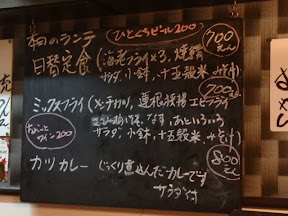 本日のランチ
ひとくちビール200
日替定食
700えん
(海老フライ×3、焼鯖
サラダ、小鉢、十五穀米、みそ汁)
700
ミックスフライ(メンチカツ、蓮根挟揚、エビフライ
なす、あといろいろ
サラダ、小鉢、十五穀米、みそ汁)
ちょこっとワイン200
800えん
カツカレー じっくり煮込んだカレーです
サラダ付